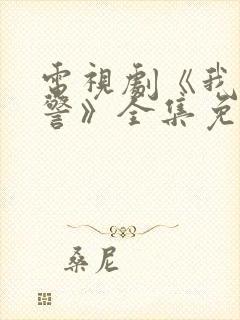 電視劇《我
警》全集免
桑尼